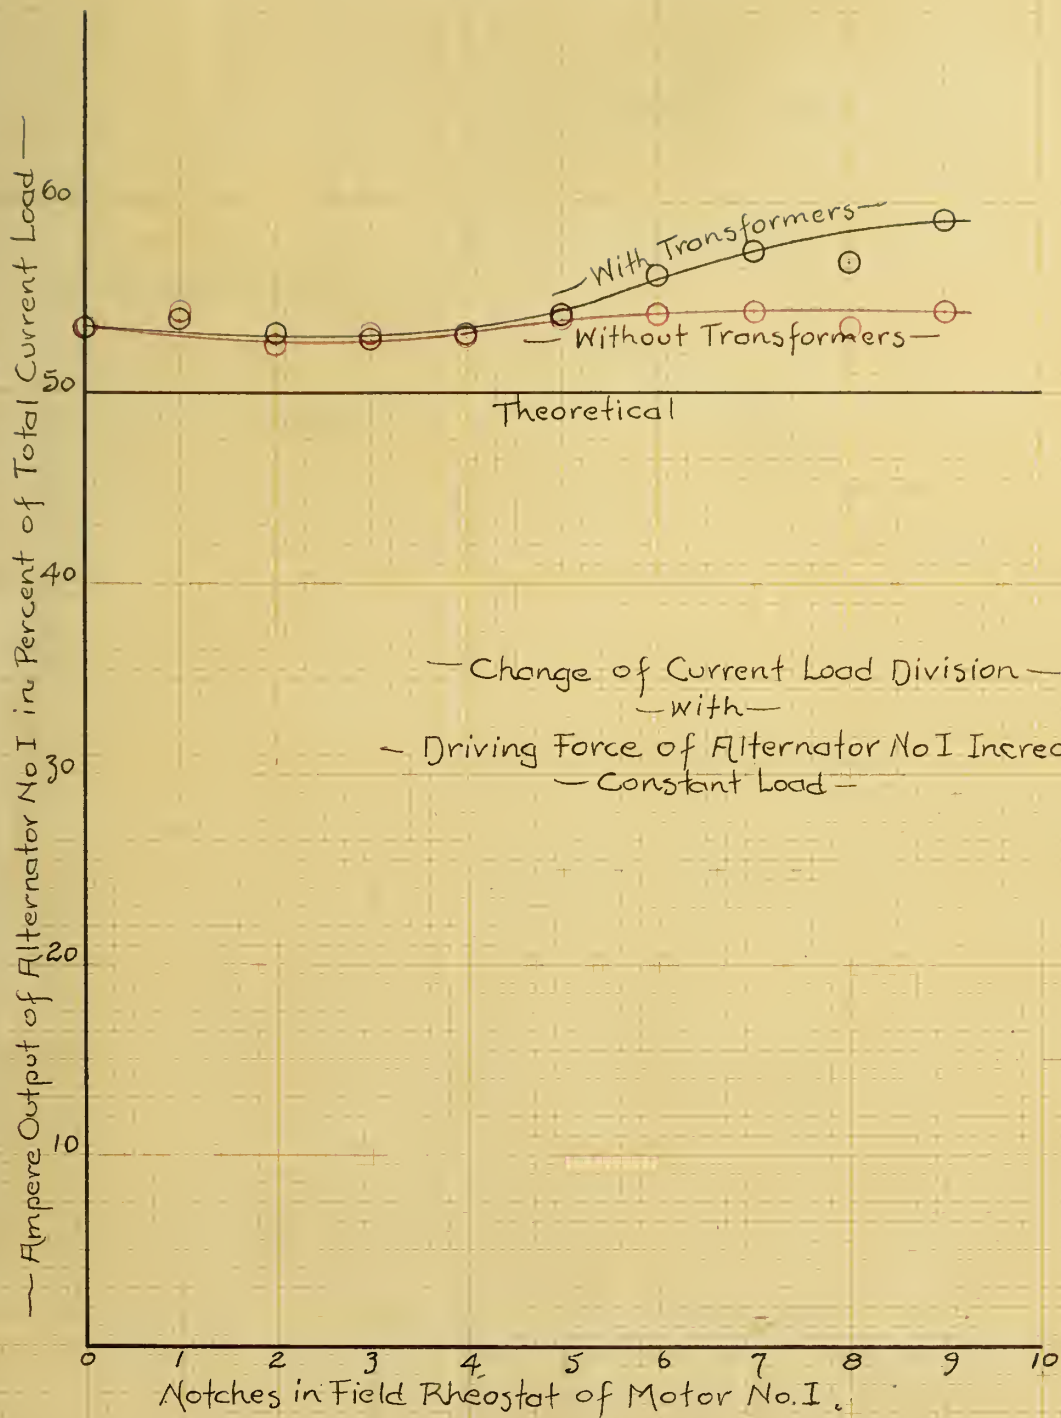 — Ampere Output of Alternator No I in Percent of Total Current Load —
60
50
40
30
20
10
— With Transformers —
— Without Transformers —
Theoretical
— Change of Current Load Division —
— with —
— Driving Force of Alternator No I Increa
— Constant Load —
0 1 2 3 4 5 6 7 8 9 10
Notches in Field Rheostat of Motor No. I.